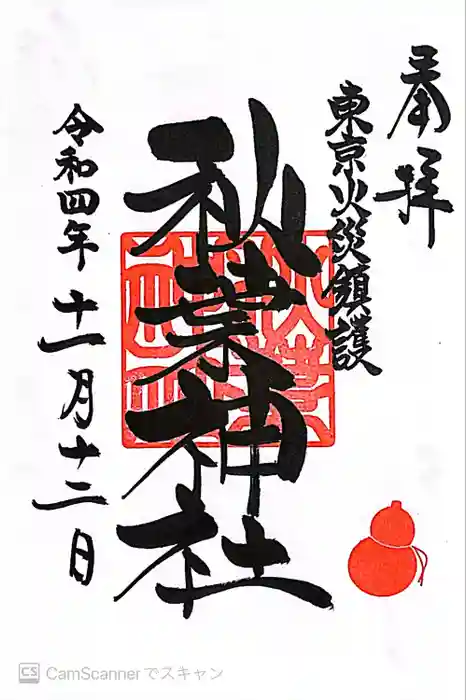 奉拝
東京火災鎮護
秋葉神社
令和四年十一月十二日
CS CamScannerでスキャン